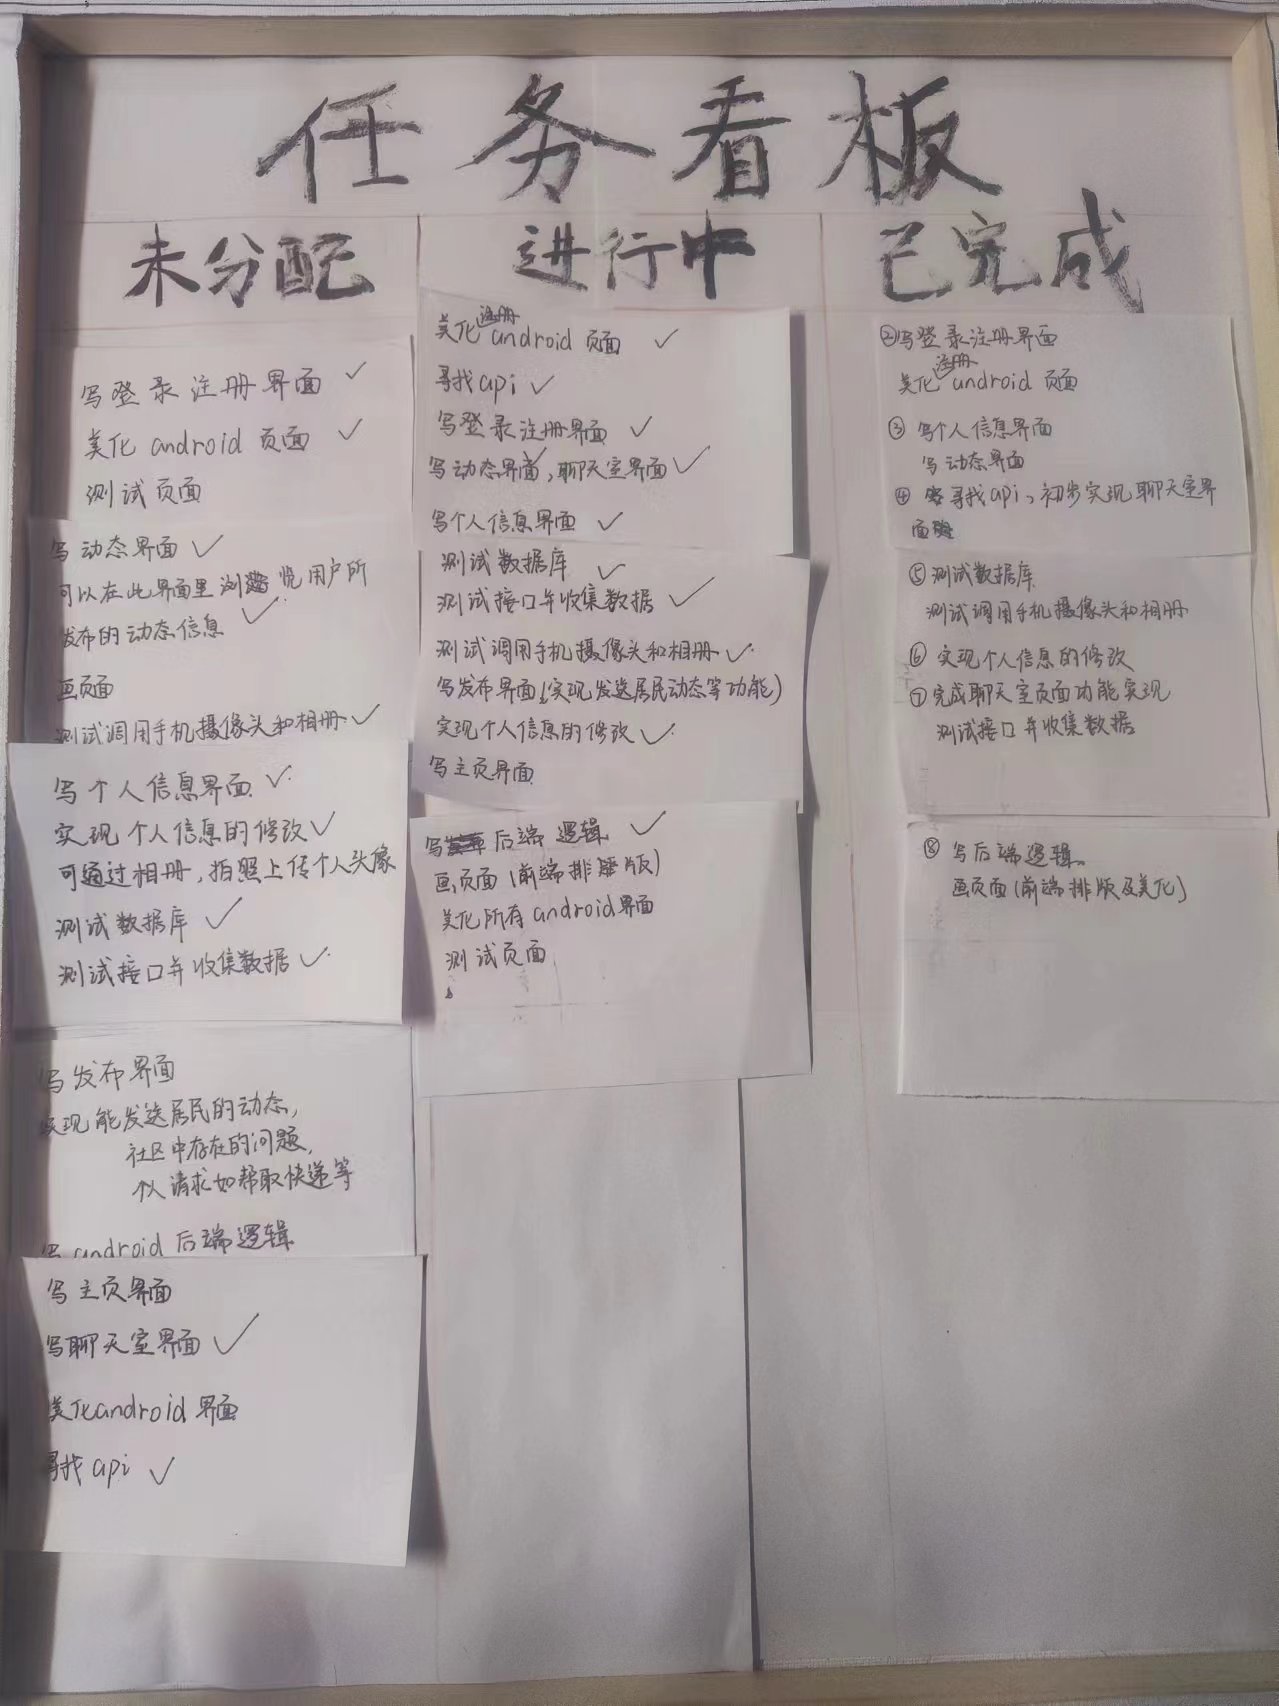 任务看板
未分配
写登录注册界面 ✓
美化 android 页面 ✓
测试页面
写动态界面 ✓
可以在此界面里浏览用户所
发布的动态信息 ✓
画页面
测试调用手机摄像头和相册 ✓
写个人信息界面 ✓
实现个人信息的修改 ✓
可通过相册,拍照上传个人头像
测试数据库 ✓
测试接口并收集数据 ✓
写发布界面
实现能发送居民的动态,
社区中存在的问题,
个人请求如帮取快递等
写 android 后端逻辑
写主页界面
写聊天室界面 ✓
美化android 界面
寻找 api ✓
进行中
美化注册android 页面 ✓
寻找api ✓
写登录注册界面 ✓
写动态界面 ✓,聊天室界面 ✓
写个人信息界面 ✓
测试数据库 ✓
测试接口并收集数据 ✓
测试调用手机摄像头和相册 ✓
写发布界面(实现发送居民动态等功能)
实现个人信息的修改 ✓
写主页界面
写后端逻辑 ✓
画页面(前端排版)
美化所有android界面
测试页面
已完成
②写登录注册界面
美化注册android 页面
③ 写个人信息界面
写动态界面
④ 寻找api、初步实现聊天室界
面
⑤ 测试数据库
测试调用手机摄像头和相册
⑥ 实现个人信息的修改
⑦ 完成聊天室页面功能实现
测试接口并收集数据
⑧ 写后端逻辑
画页面(前端排版及美化)